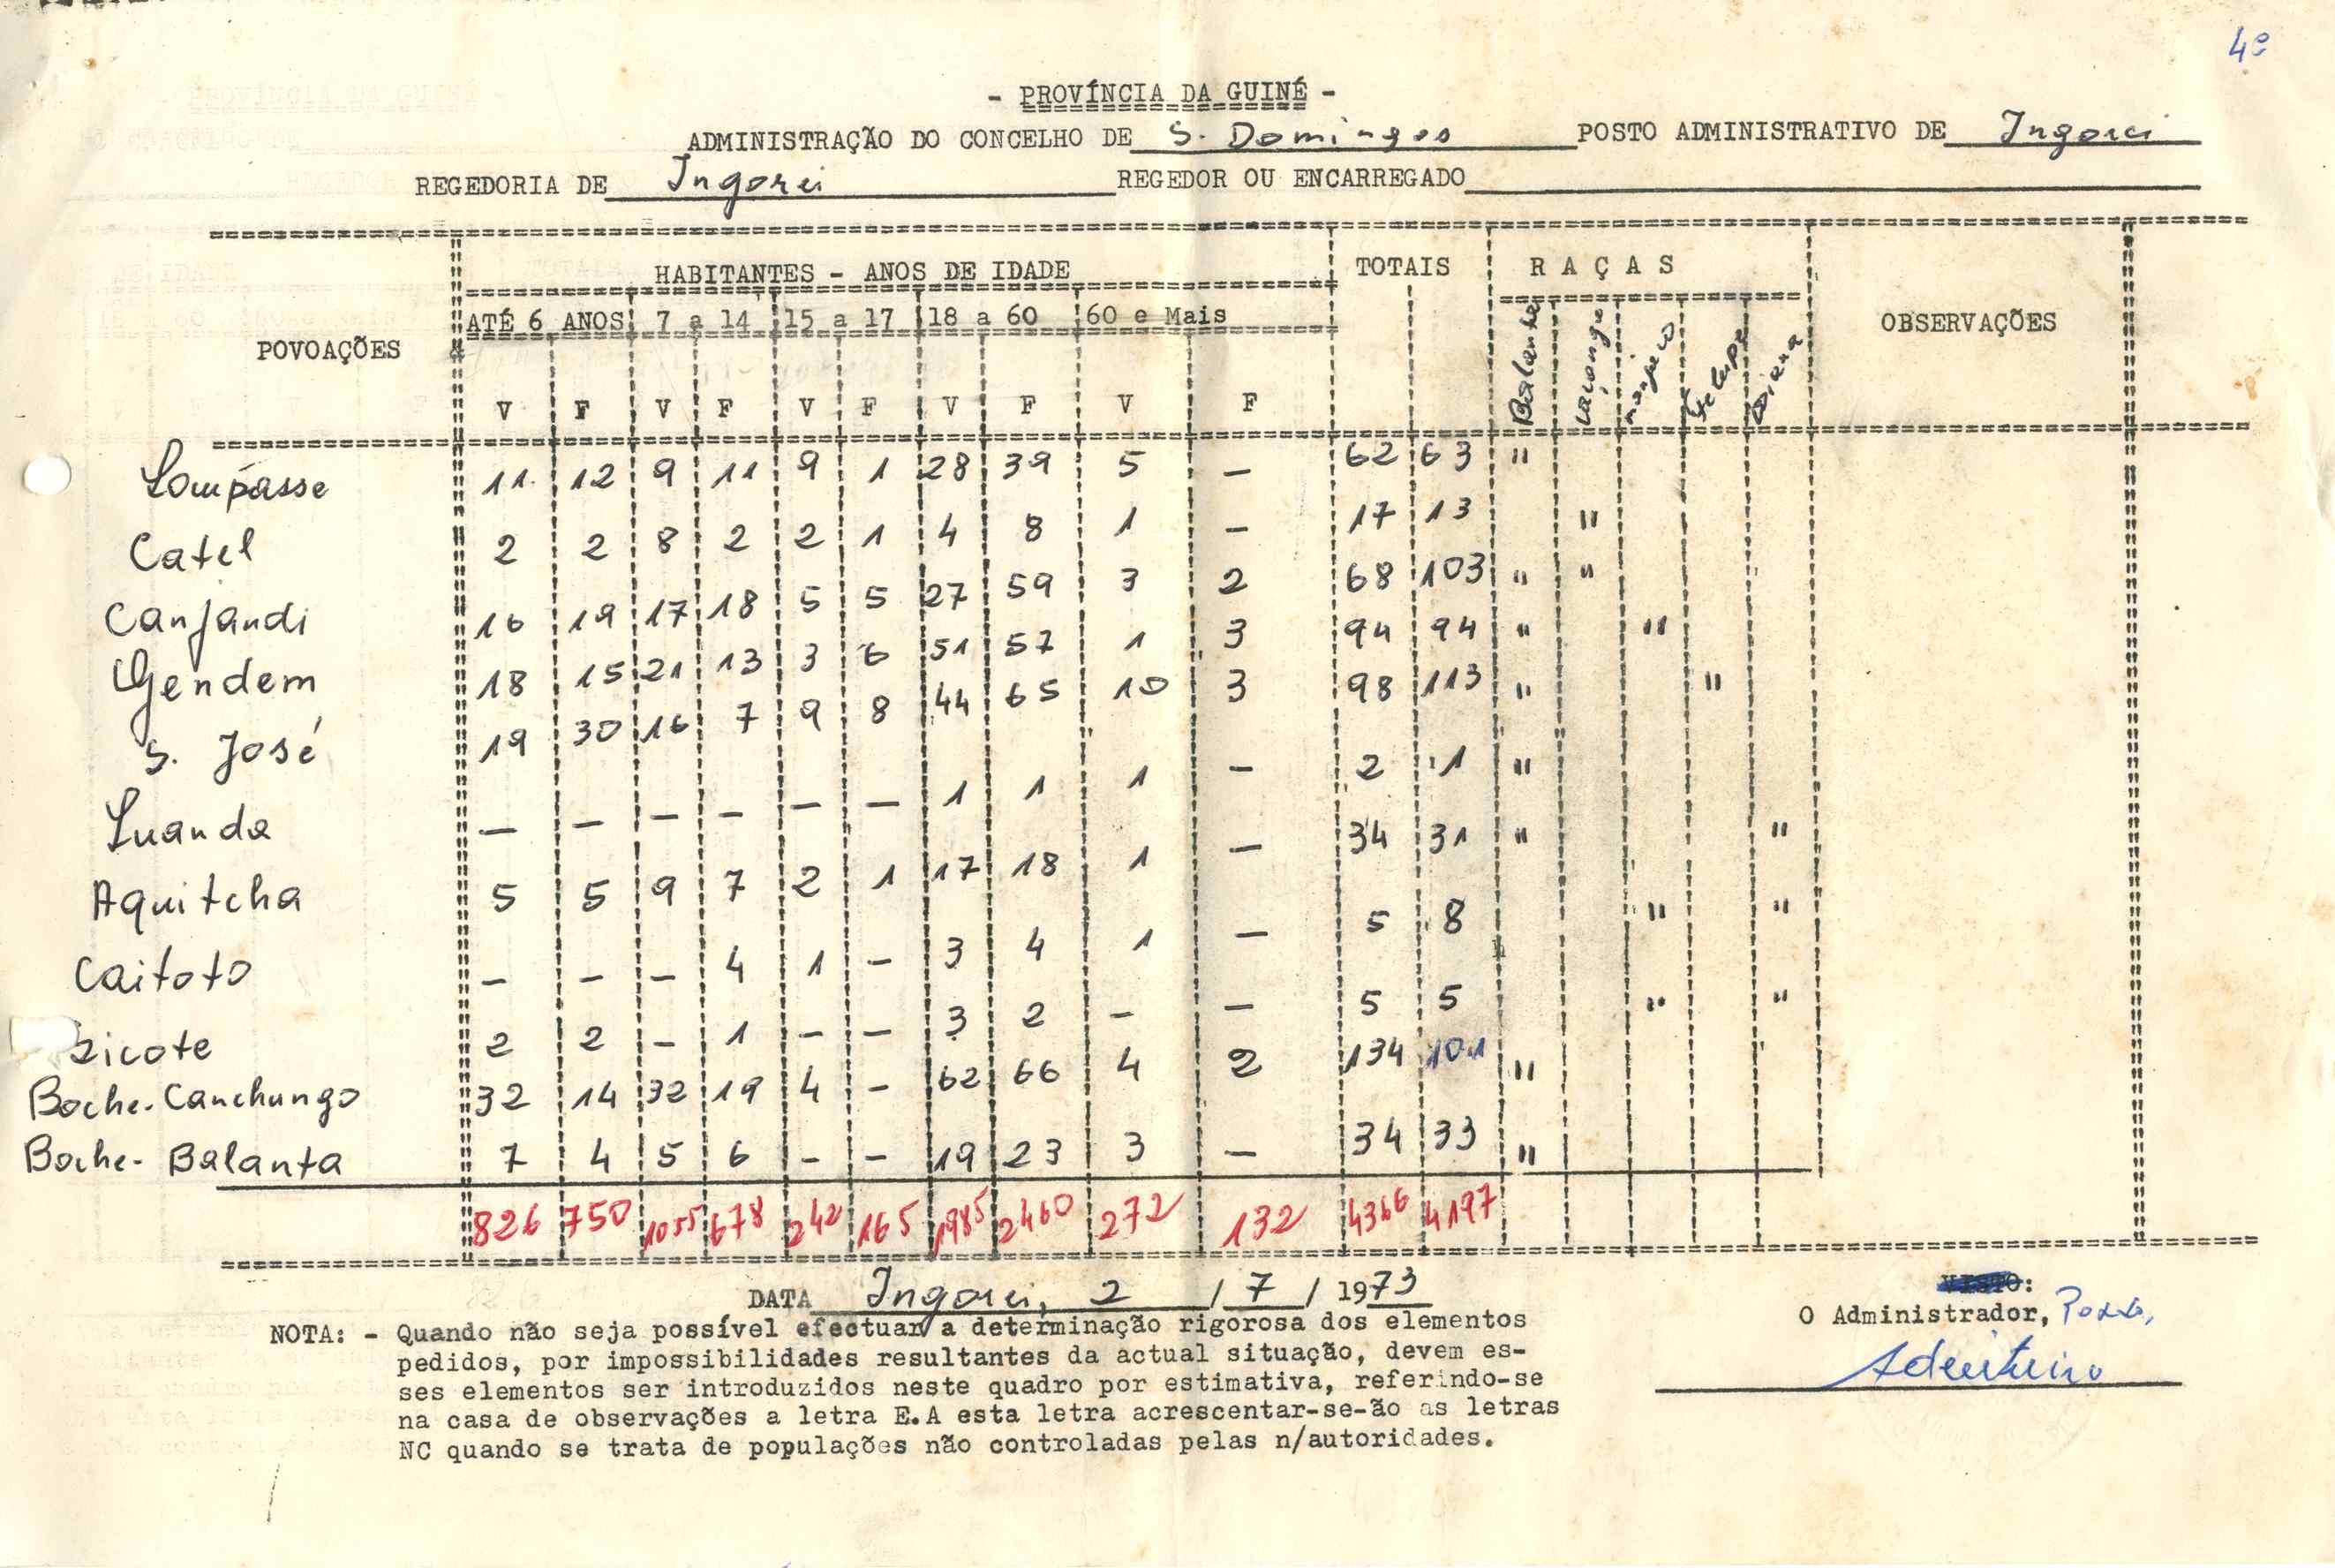 4º
- PROVÍNCIA DA GUINÉ -
ADMINISTRAÇÃO DO CONCELHO DE S. Domingos POSTO ADMINISTRATIVO DE Ingorei
REGEDORIA DE Ingorei REGEDOR OU ENCARREGADO
POVOAÇÕES HABITANTES - ANOS DE IDADE TOTAIS RAÇAS OBSERVAÇÕES
ATÉ 6 ANOS 7 a 14 15 a 17 18 a 60 60 e Mais Balanta
V F V F V F V F V F
Lompásse 11 12 9 11 9 1 28 39 5 — 62 63 "
Catel 2 2 8 2 2 1 4 8 1 — 17 13 "
Canjandi 16 19 17 18 5 5 27 59 3 2 68 103 " "
Gendem 18 15 21 13 3 6 51 57 1 3 94 94 " "
S. José 19 30 16 7 9 8 44 65 10 3 98 113 " "
Luanda — — — — — — 1 1 1 — 2 1 "
Aquitcha 5 5 9 7 2 1 17 18 1 — 34 31 " "
Caitoto — — — 4 1 — 3 4 1 — 5 8 " "
2 2 — 1 — — 3 2 — — 5 5 " "
Boche-Canchungo 32 14 32 19 4 - 62 66 4 2 134 101 "
Boche-Balanta 7 4 5 6 - - 19 23 3 — 34 33 "
826 750 1055 678 242 165 1985 2460 272 132 4366 4197
DATA Ingorei, 2 / 7 / 1973
VISTO:
O Administrador, Posto,
NOTA: - Quando não seja possível efectuar a determinação rigorosa dos elementos
pedidos, por impossibilidades resultantes da actual situação, devem es-
ses elementos ser introduzidos neste quadro por estimativa, referindo-se
na casa de observações a letra E.A esta letra acrescentar-se-ão as letras
NC quando se trata de populações não controladas pelas n/autoridades.